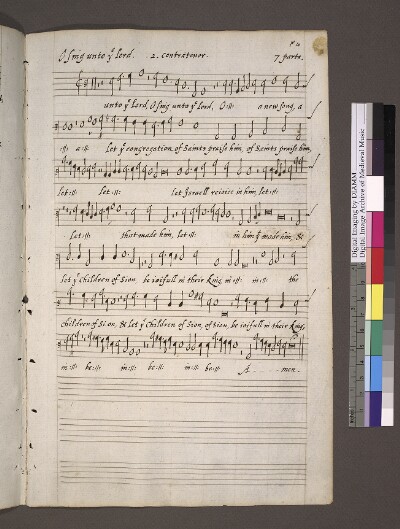 O sing unto yͤ lord. 2. contratenor. 7. parts.
unto yͤ lord, O sing unto yͤ lord, O :||: a new song, a
:||: a :||: Let yͤ congregation of Saints praise him, of Saints praise him,
let :||: let :||: let Israell reioice in him, let :||:
let :||: that made him, let :||: in him yͭ made him, &
let yͤ children of Sion be ioifull in their King, in :||: in :||: the
children of Sion, & let yͤ children of Sion, of Sion, be ioifull in their King,
in :||: be :||: in :||: be :||: in :||: be :||: A - men.
Digital Images by DIAMM
Digital Image Archive of Medieval Music